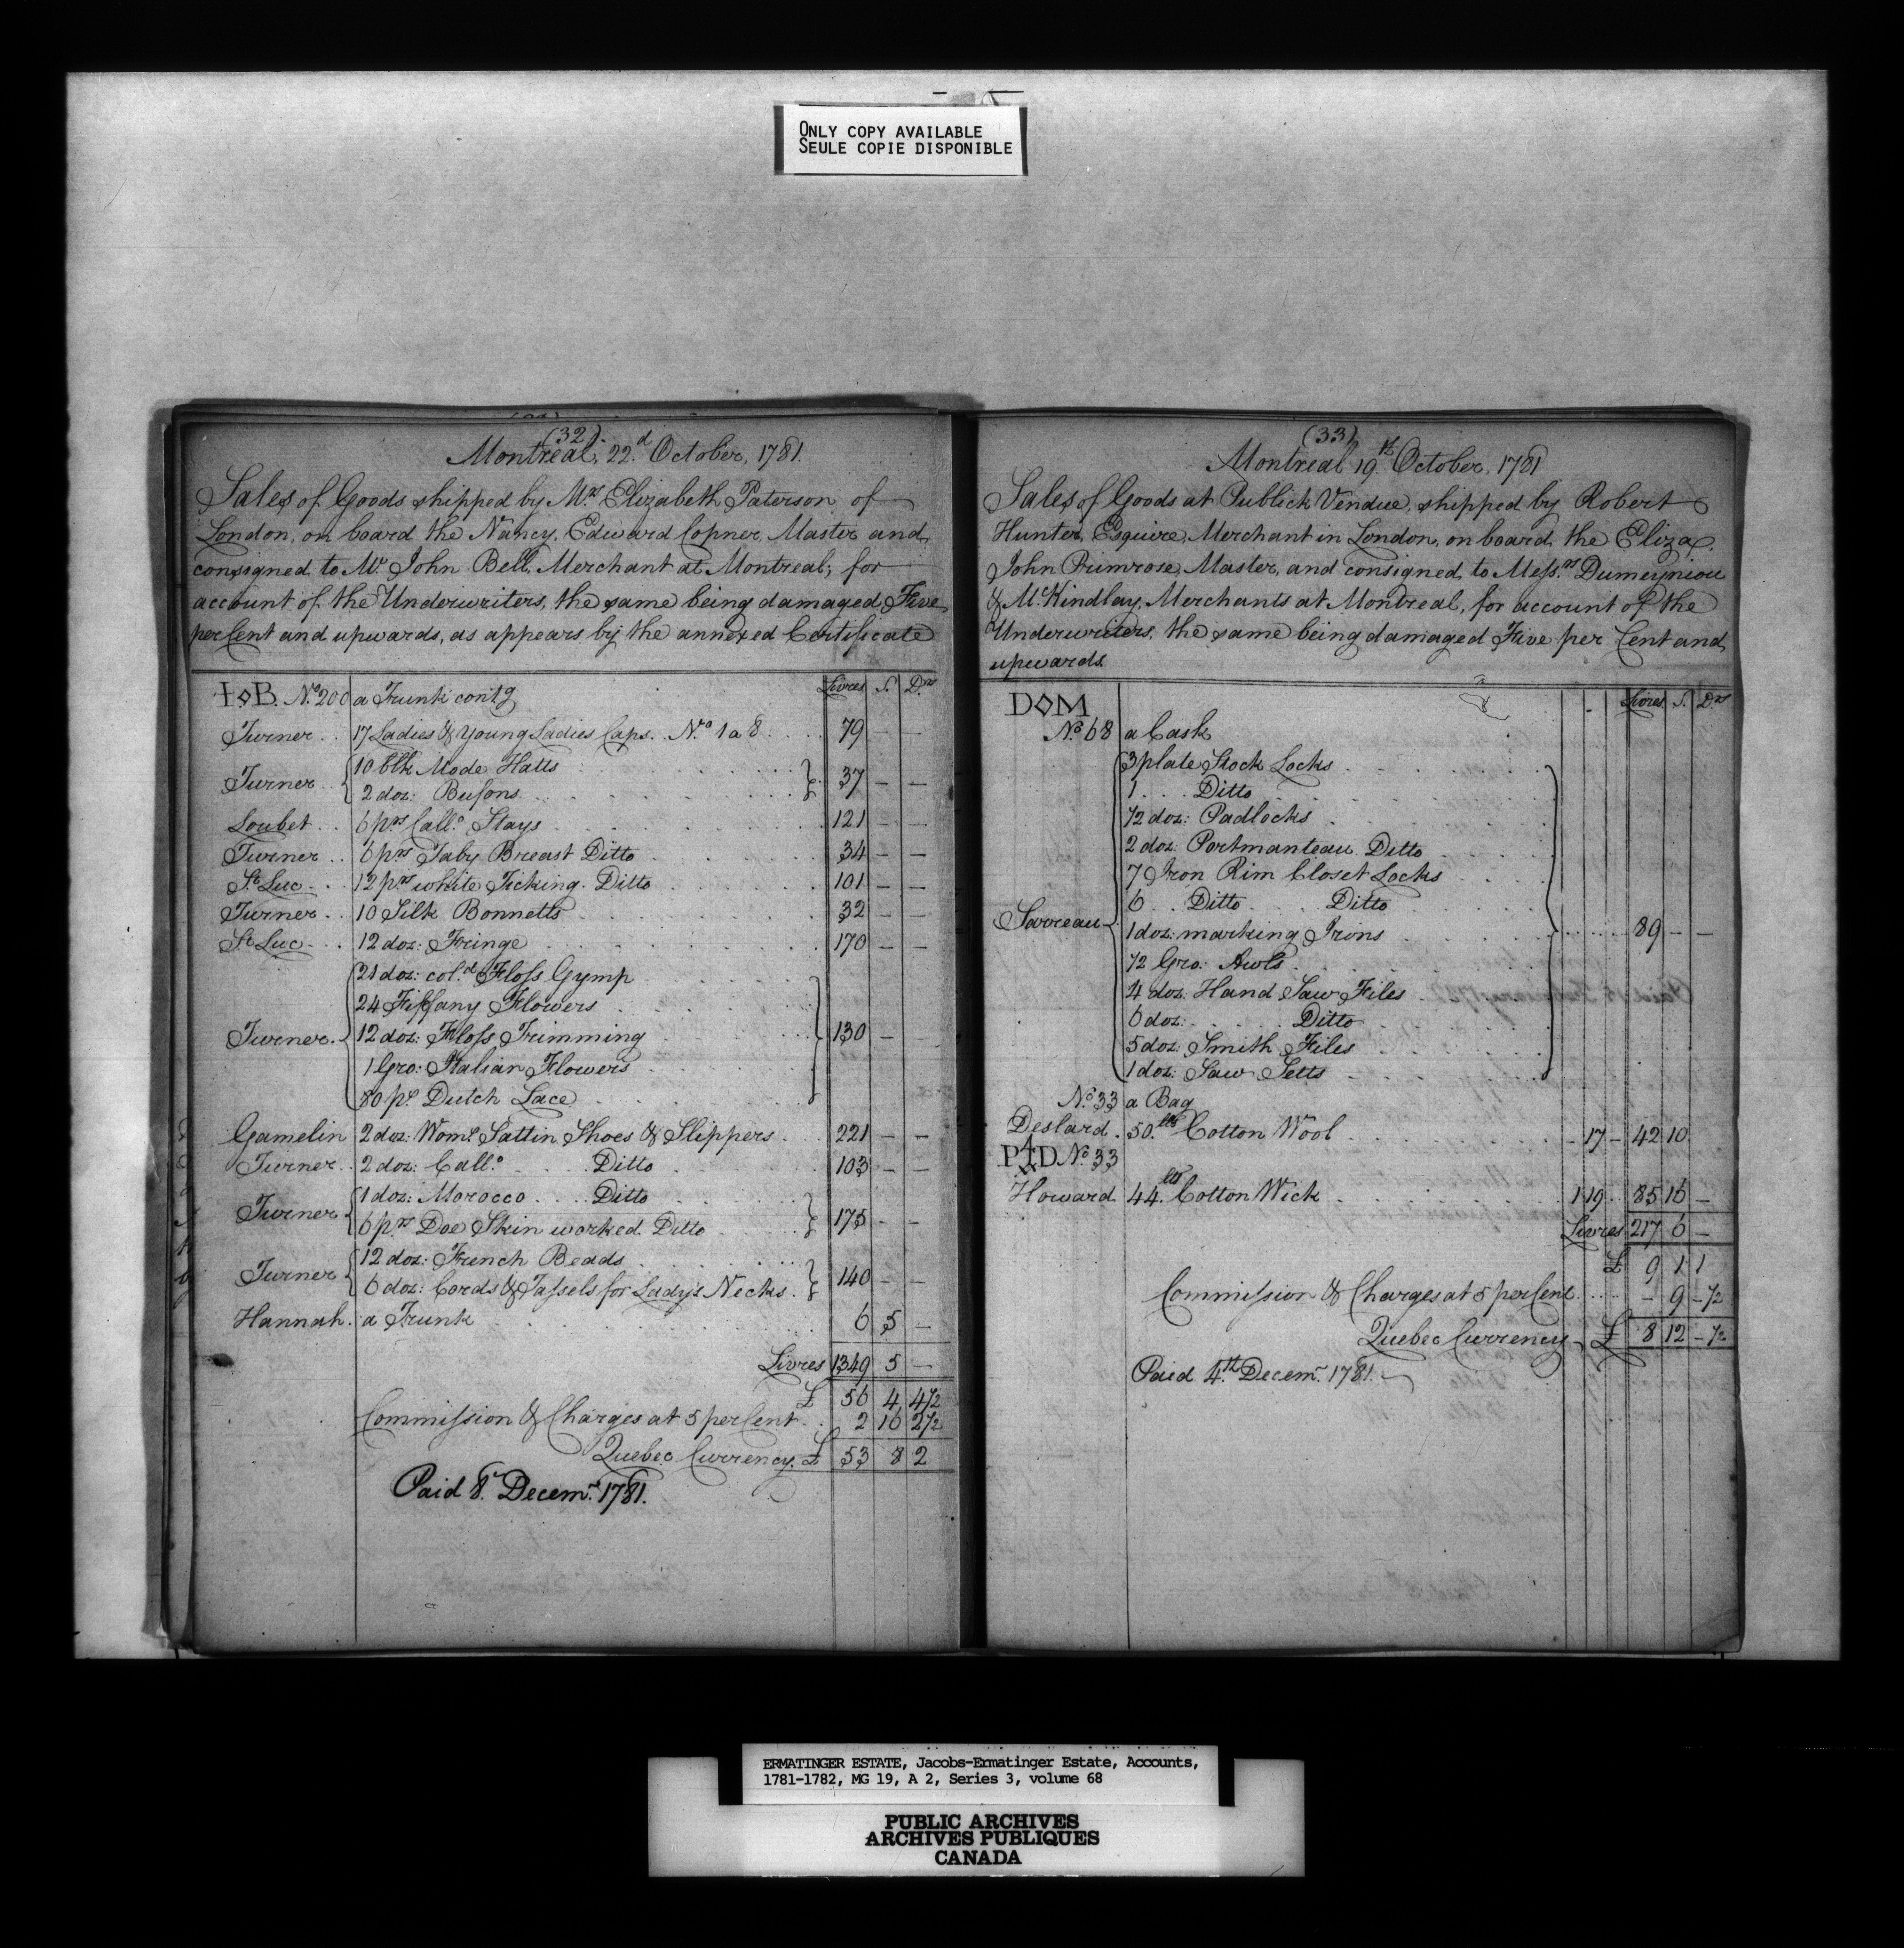 ONLY COPY AVAILABLE
SEULE COPIE DISPONIBLE
(32).
Montreal, 22.d October, 1781.
Sales of Goods shipped by Mrs Elizabeth Paterson of
London, on board the Nancy, Edward Copner, Master and
consigned to Mr John Bell, Merchant at Montreal; for
account of the Underwriters, the same being damaged, Five
per Cent and upwards, as appears by the annexed Certificate
Livres S. Drs
I◊B. No. 200 a Trunk contg
Turner .. 17 Ladies & Young Ladies Caps. No 1 a 8 79 — —
Turner 10 blk Mode Hatts
2 doz: Bufons 37 — —
Loubet .. 6 prs Callo Stays 121 — —
Turner .. 6 prs Taby Breast Ditto 34 — —
St Luc .. 12 prs white Ticking Ditto 101 — —
Turner .. 10 Silk Bonnetts 32 — —
St Luc .. 12 doz: Fringe 170 — —
21 doz: col.d Floss Gymp
24 Tiffany Flowers
Turner. 12 doz: Floss Trimming 130 — —
1 Gro: Italian Flowers
80 ps Dutch Lace
Gamelin 2 doz: Woms Sattin Shoes & Slippers 221 — —
Turner .. 2 doz: Callo Ditto 103 — —
Turner 1 doz: Morocco Ditto
6 prs Doe Skin worked Ditto 175 — —
Turner 12 doz: French Beads
6 doz: Cords & Tassels for Ladys Necks 140 — —
Hannah. a Trunk 6 5 —
Livres 1349 5 —
£ 56 4 4½
Commission & Charges at 5 per Cent 2 16 2½
Quebec Currency £ 53 8 2
Paid 8. Decemr 1781.
(33)
Montreal 19.th October, 1781
Sales of Goods at Publick Vendue, shipped by Robert
Hunter, Esquire, Merchant in London, on board the Eliza,
John Primrose, Master, and consigned to Messrs Dumeyniou
& McKindlay, Merchants at Montreal, for account of the
Underwriters, the same being damaged Five per Cent and
upwards.
Livres S. Drs
D◊M
No. 68 a Cask
3 plate Stock Locks
1 ... Ditto
½ doz: Padlocks
2 doz Portmanteau Ditto
7 Iron Rim Closet Locks
6 .. Ditto ... Ditto
1 doz: marking Irons 89 — —
½ Gro: Awls
4 doz: Hand Saw Files
6 doz: Ditto
5 doz: Smith Files
1 doz: Saw Setts
No. 33 a Bag
Deslard. 50.lbs Cotton Wool — 17 — 42 10
No. 33
Howard 44.lbs Cotton Wick 1 19 85 16 —
Livres 217 6 —
£ 9 1 1
Commission & Charges at 5 per Cent — 9 — ½
Quebec Currency £ 8 12 — ½
Paid 4.th Decemr 1781.
ERMATINGER ESTATE, Jacobs-Ermatinger Estate, Accounts,
1781-1782, MG 19, A 2, Series 3, volume 68
PUBLIC ARCHIVES
ARCHIVES PUBLIQUES
CANADA